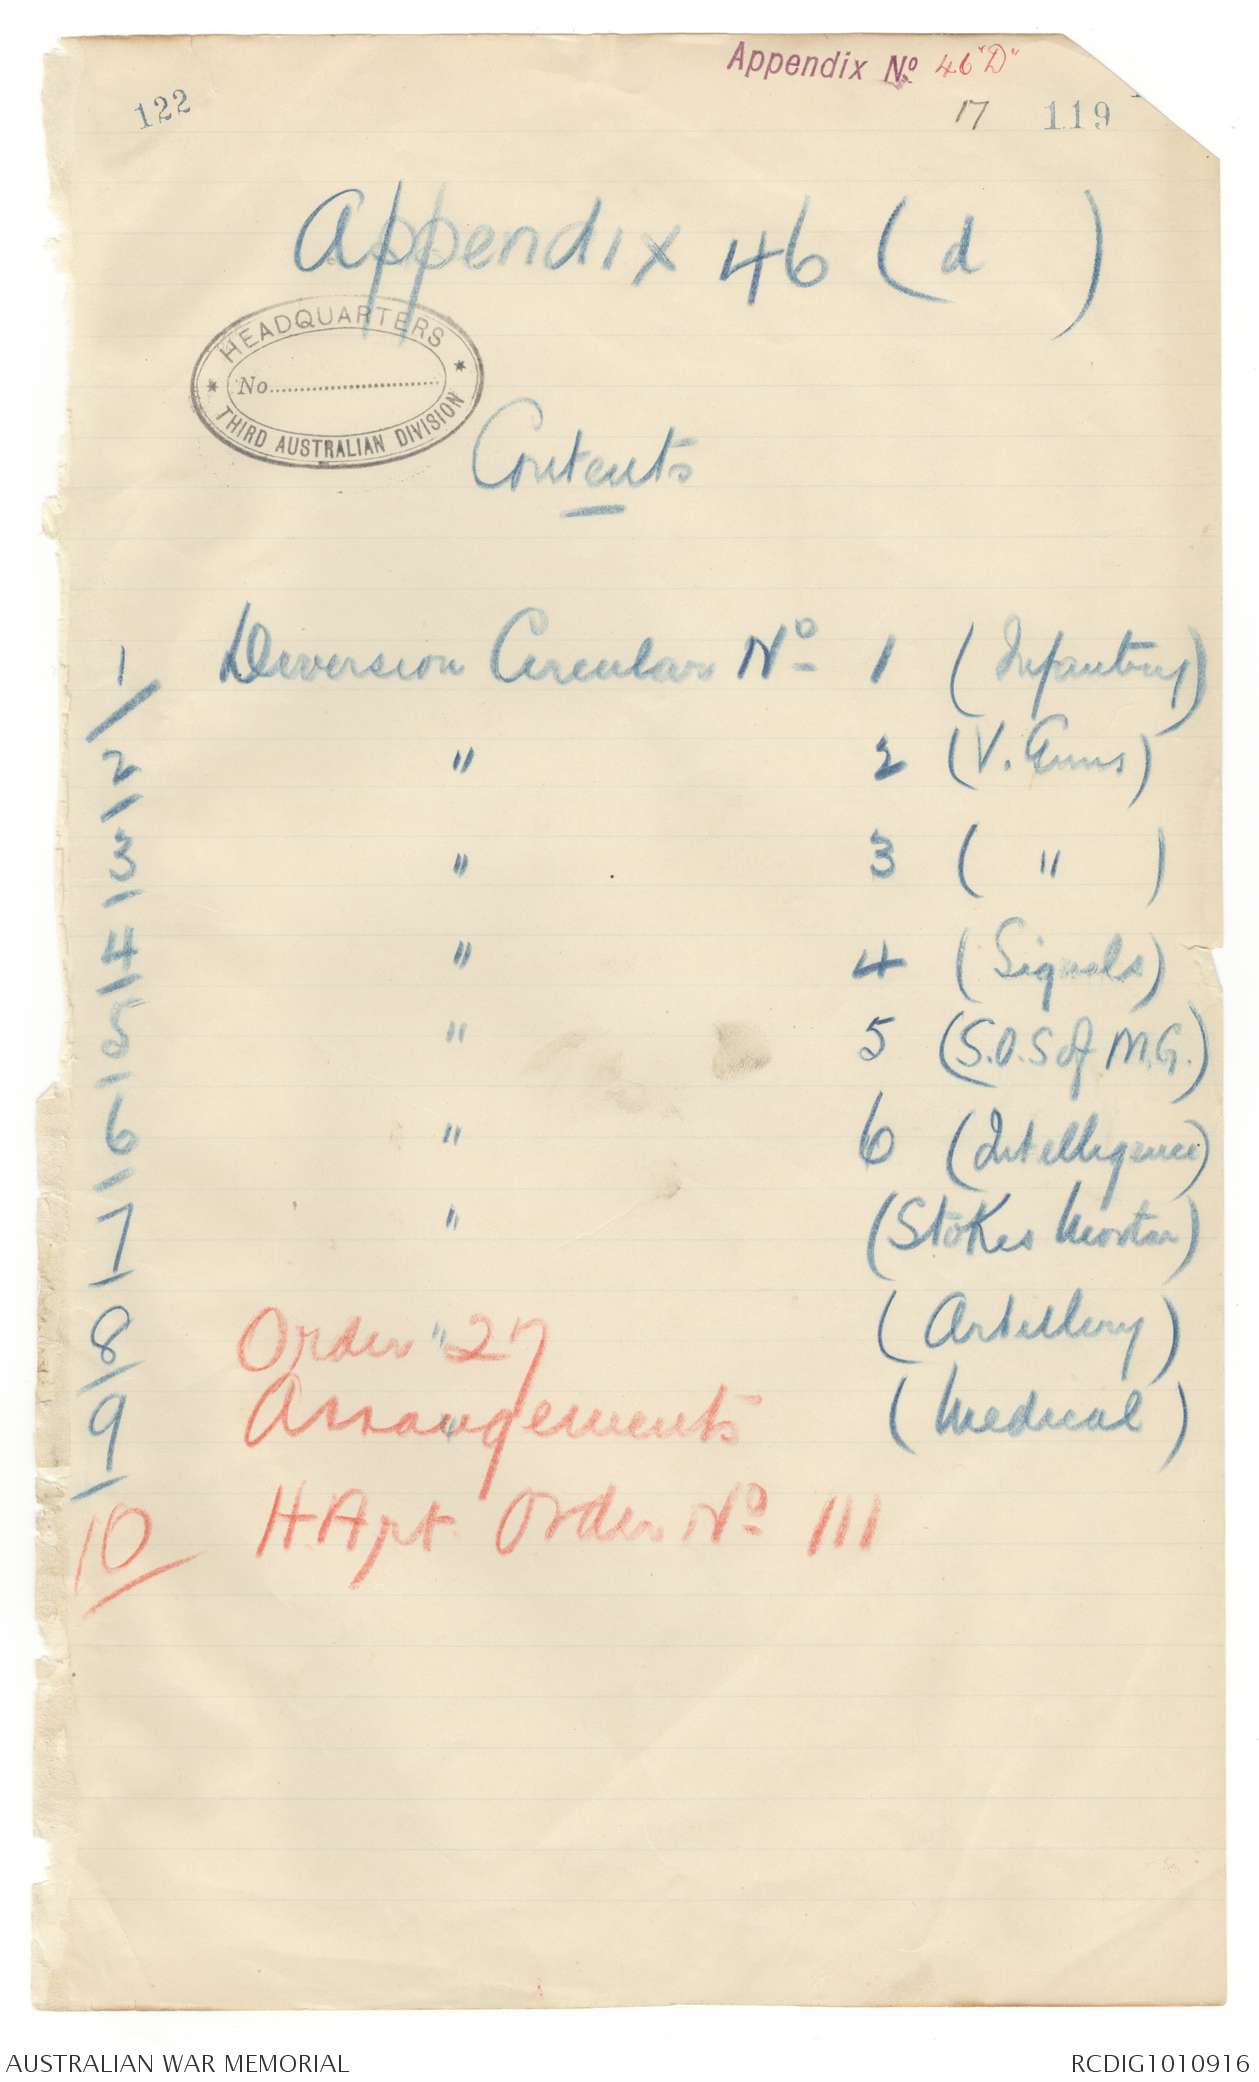 Appendix No 46 "D"
122
17 119
Appendix 46 (d)
HEADQUARTERS
No
THIRD AUSTRALIAN DIVISION
Contents
1/ Diversion Circular No 1 (Infantry)
2/ " 2 (V. Guns)
3/ " 3 ( " )
4/ " 4 (Signals)
5/ " 5 (S.O.S of M.G.)
6/ " 6 (Intelligence)
7/ " (Stokes Mortar)
8/ Order " 27 (Artillery)
9/ Arrangements (Medical)
10/ H.Apt. Order No 111
AUSTRALIAN WAR MEMORIAL
RCDIG1010916